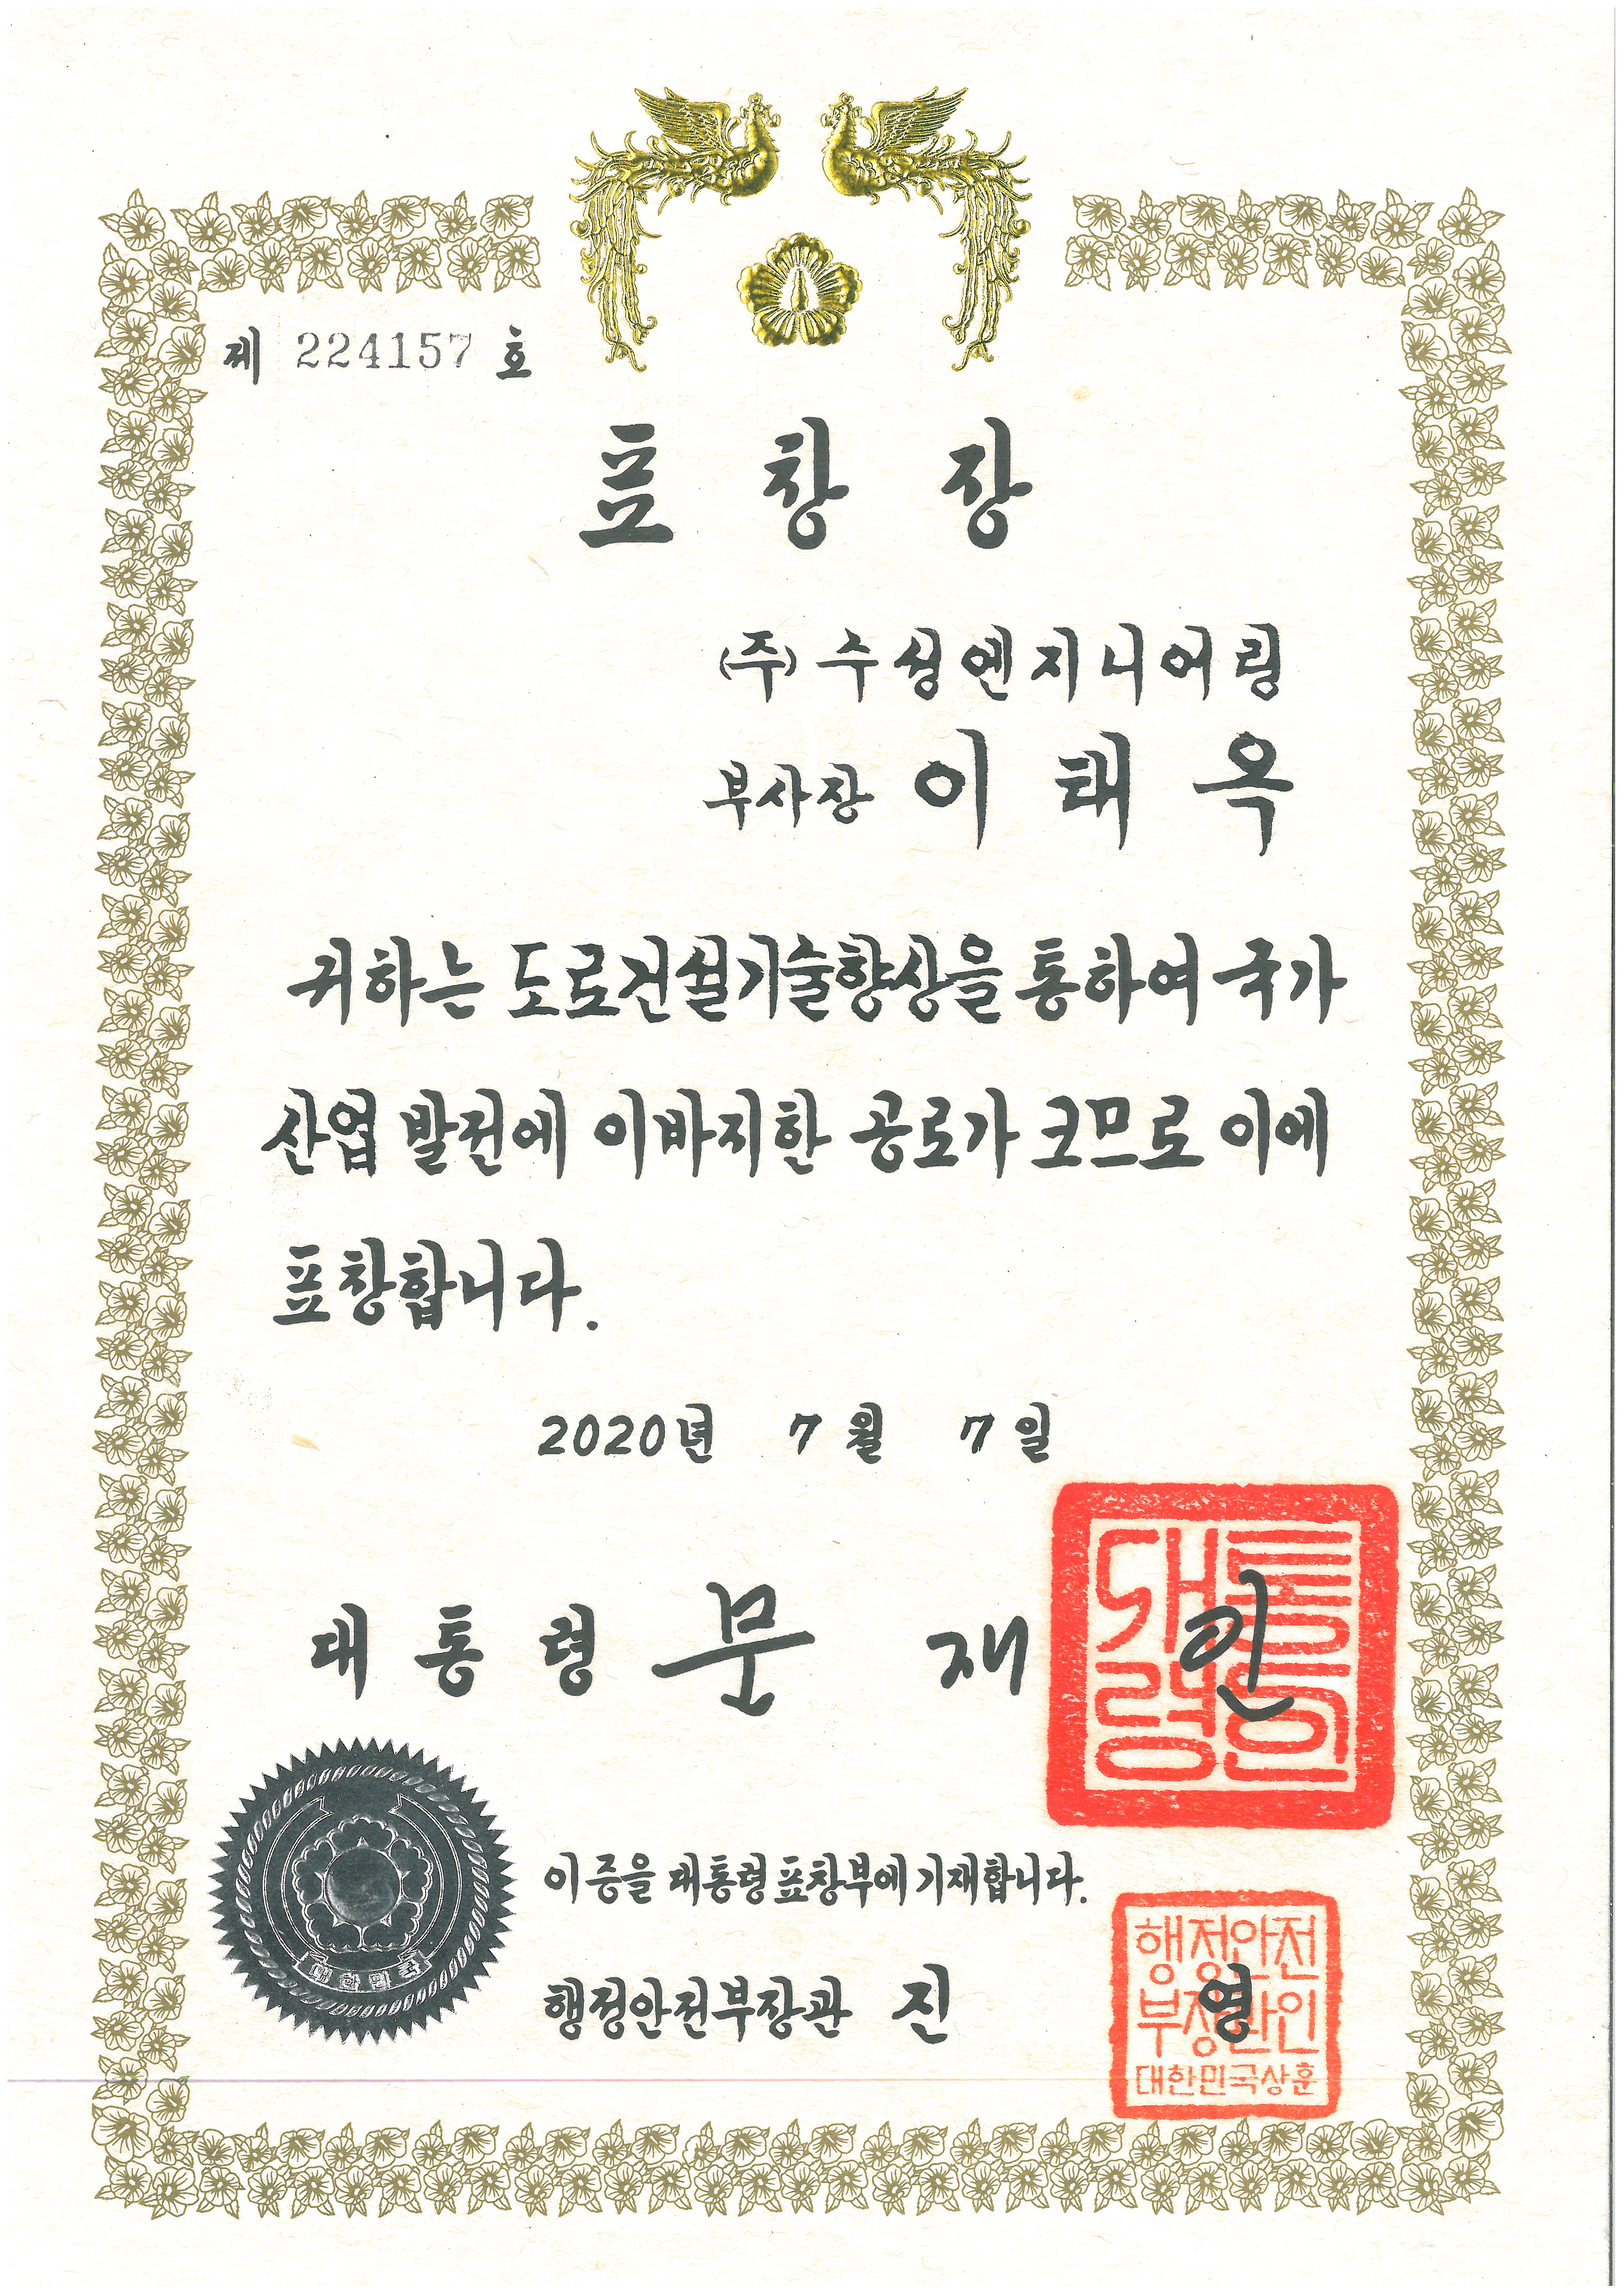 제 224157 호
표 창 장
(주) 수성엔지니어링
부사장 이 태 옥
귀하는 도로건설기술향상을 통하여 국가
산업 발전에 이바지한 공로가 크므로 이에
표창합니다.
2020년 7월 7일
대통령 문 재 인
대통
령인
대한민국
이 증을 대통령표창부에 기재합니다.
행정안전부장관 진 영
행정안전
부장관인
대한민국상훈